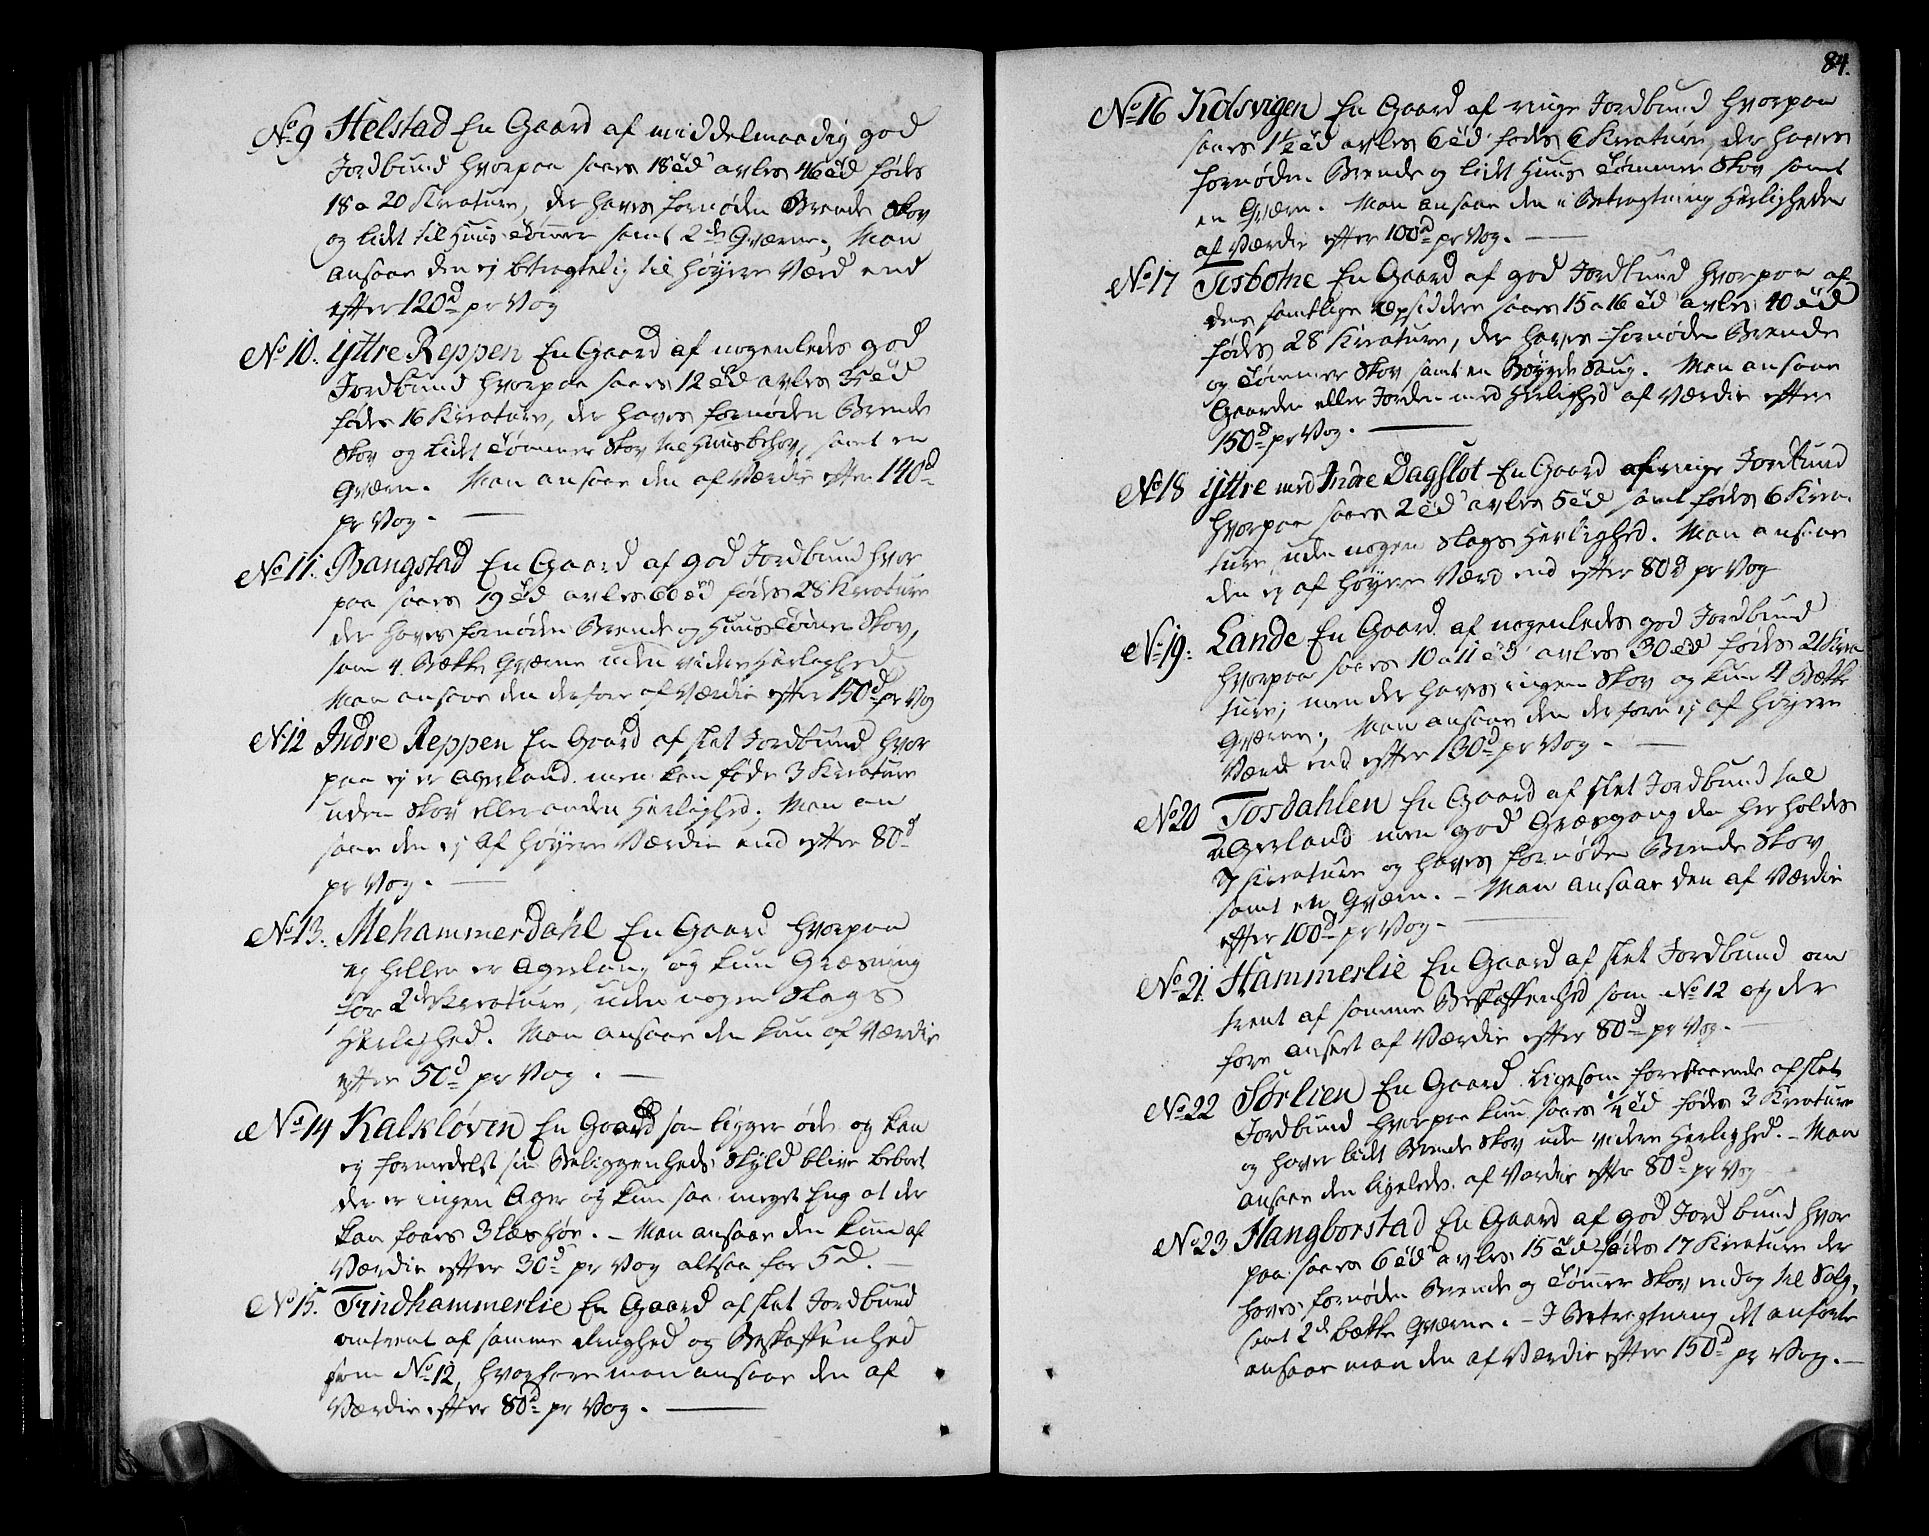 No 9 Helstad En Gaard af middelmaadig god
Jordbund hvorpaa saaes 18 td avles 46 td fødes
18 a 20 Kreature, der haves fornøden Brende Skov
og lidt til Huus Tømmer samt 2de Qværne; Man
ansaae den ej betragtelig til høyere Værd end
efter 120 d pr Vog
No 10. Yttre Reppen En Gaard af nogenledes god
Jordbund hvorpaa saaes 12 td avles 35 td
fødes 16 Kreature, der haves fornøden Brende
Skov og lidt Tømmer Skov til Huusbehov, samt en
Qværn. Man ansaae den af Værdie efter 140 d
pr Vog.
No 11. Bangstad En Gaard af god Jordbund hvor
paa saaes 19 td avles 60 td fødes 28 Kreature
der haves fornøden Brende og Huus Tømmer Skov,
som 4 Bække Qværne uden videre Herlighed
Man ansaae den derfore af Værdie efter 150 d pr Vog
No 12 Indre Reppen En Gaard af slet Jordbund hvor
paa ej er Agerland men kan føde 3 Kreature
uden Skov eller anden Herlighed; Man an
saae den ej af høyere Værdie end efter 80 d
pr Vog.
No 13. Mehammerdahl En Gaard hvorpaa
ej heller er Agerland og kun Græsning
for 2de Kreature, uden nogen Slags
Herlighed. Man ansaae den kun af Værdie
efter 50 d pr Vog.
No 14 Kalkløvin En Gaard som ligger øde og kan
ej formedelst sin Beliggenheds Skyld blive beboet
der er ingen Ager og kun saa meget Eng at der
kan faaes 3 læs høe. - Man ansaae den kun af
Værdie efter 30 d pr Vog altsaa for 5 d.
No 15. Trindhammerlie En Gaard af slet Jordbund
omtrent af samme Ringhed og Beskaffenhed
som No 12, hvorfore man ansaae den af
Værdie efter 80 d pr Vog.
84.
No 16 Kolsvigen En Gaard af ringe Jordbund hvorpaa
saaes 1½ td avles 6 td fødes 6 Kreature, der haves
fornøden Brende og lidt Huus Tømmer Skov samt
en Qværn. Man ansaae den i Betragtning Herligheden
af Værdie efter 100 d pr Vog.
No 17 Tosbotne En Gaard af god Jordbund hvorpaa af
dens samtlige Opsiddere saaes 15 a 16 td avles 40 td
fødes 28 Kreature, der haves fornøden Brende
og Tømmer Skov samt en Bøygde Saug. Man ansaae
Gaarden eller Jorden med Herlighed af Værdie efter
150 d pr Vog.
No 18 Yttre med Indre Dagslot En Gaard af ringe Jordbund
hvorpaa saaes 2 td avles 5 td samt fødes 6 Krea-
ture uden nogen Slags Herlighed. Man ansaae
den ej af høyere Værd end efter 80 d pr Vog
No 19. Lande En Gaard af nogenledes god Jordbund
hvorpaa saaes 10 a 11 td avles 30 td fødes 21 Krea
ture; men der haves ingen Skov og kun 4 Bække
Qværne; Man ansaae den derfore ej af høyere
Værd end efter 130 d pr Vog.
No 20 Tosdahlen En Gaard af slet Jordbund til
Agerland men god Græsgang den her holdes
7 Kreature og haves fornøden Brende Skov
samt en Qværn. - Man ansaae den af Værdie
efter 100 d pr Vog.
No 21. Hammerlie En Gaard af slet Jordbund om
trent af samme Beskaffenhed som No 12 og der
fore anseet af Værdie efter 80 d pr Vog.
No 22 Sørlien En Gaard ligesom forestaaende af slet
Jordbund hvorpaa kun saaes ¼ td fødes 3 Kreature
og haver lidt Brende Skov uden videre Herlighed. - Man
ansaae den ligeledes af Værdie efter 80 d pr Vog
No 23 Hangborstad En Gaard af god Jordbund hvor
paa saaes 6 td avles 15 td fødes 17 Kreature der
haves fornøden Brende og Tømmer Skov endog til Salg,
samt 2de bække Qværne. - I Betragtning det anførte
ansaae man den af Værdie efter 150 d pr Vog.